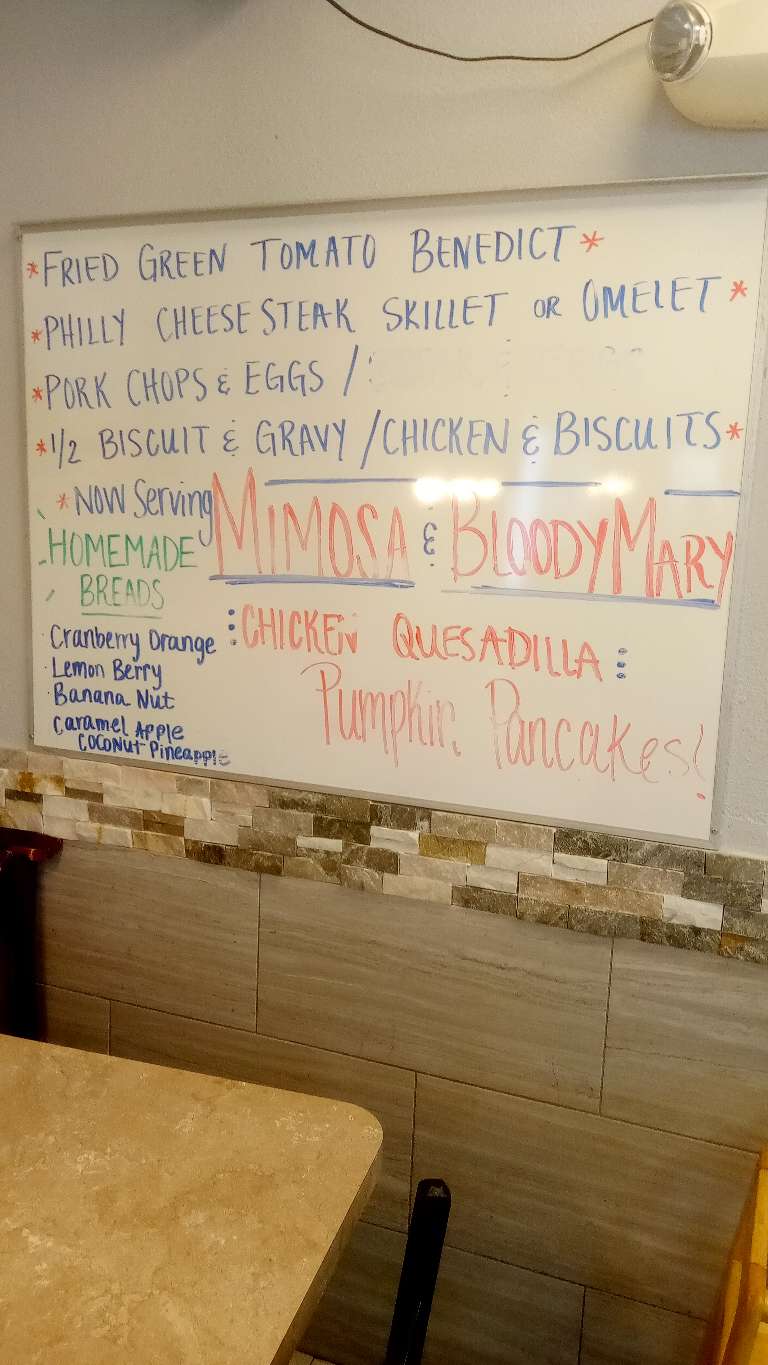 *FRIED GREEN TOMATO BENEDICT*
*PHILLY CHEESE STEAK SKILLET OR OMELET*
*PORK CHOPS & EGGS /
*1/2 BISCUIT & GRAVY / CHICKEN & BISCUITS*
*NOW Serving MIMOSA & BLOODY MARY
HOMEMADE
BREADS
· Cranberry Orange
· Lemon Berry
· Banana Nut
Caramel Apple
COCONUT Pineapple
:CHICKEN QUESADILLA:
Pumpkin Pancakes!